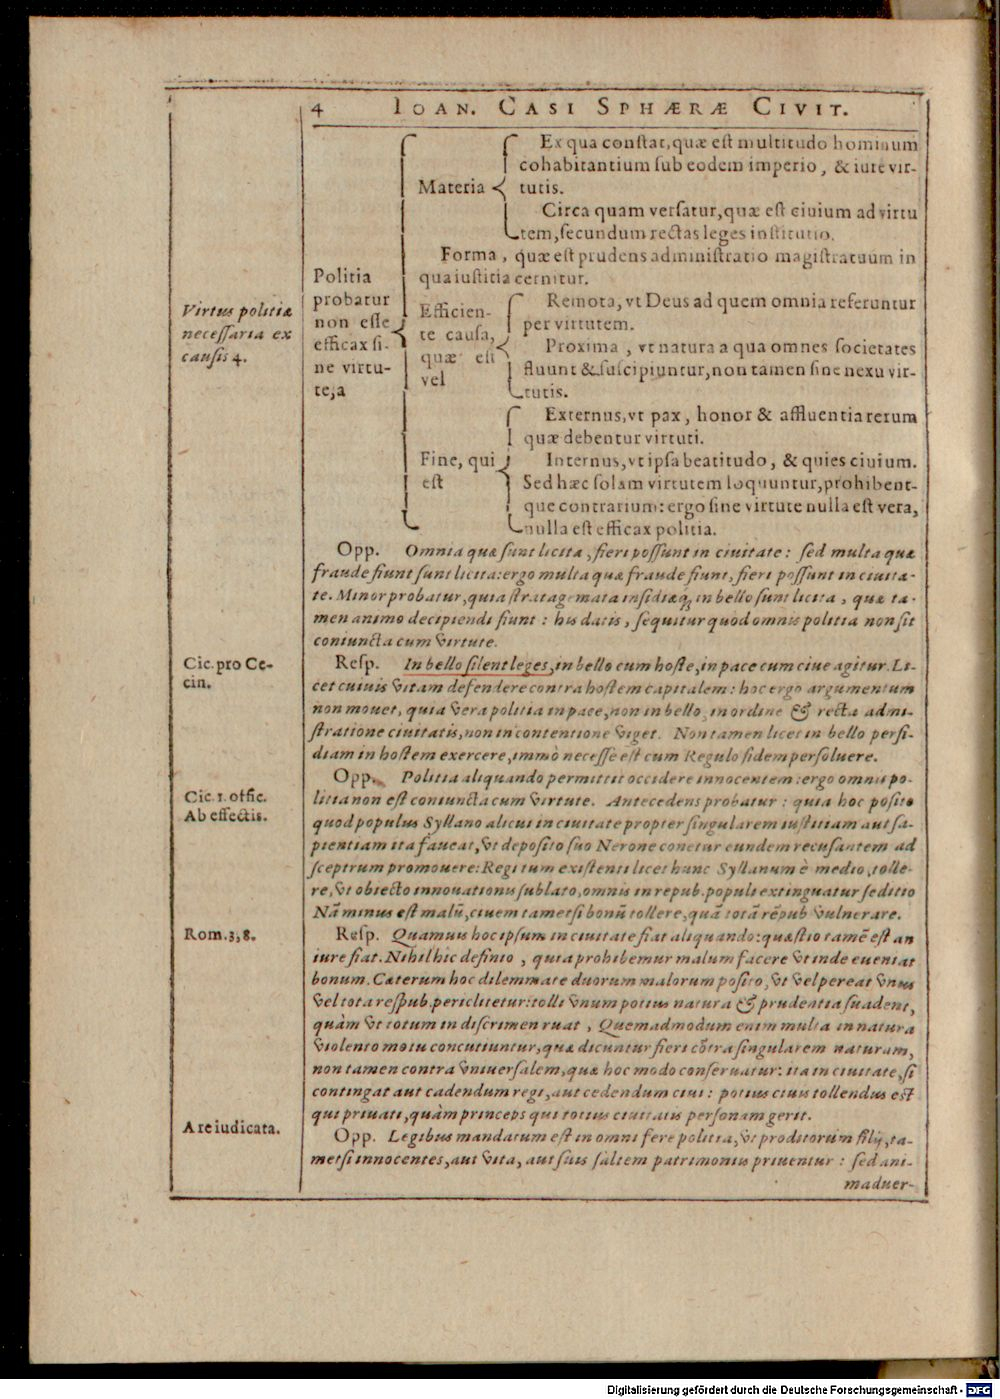 4 IOAN. CASI SPHÆRÆ CIVIT.
Virtus politiæ
necessaria ex
causis 4.
Politia
probatur
non esse
efficax si-
ne virtu-
te, a
Materia
Ex qua constat, quæ est multitudo hominum
cohabitantium sub eodem imperio, & iure vir-
tutis.
Circa quam versatur, quæ est ciuium ad virtu
tem, secundum rectas leges institutio.
Forma, quæ est prudens administratio magistratuum in
qua iustitia cernitur.
Efficien-
te causa,
quæ est
vel
Remota, vt Deus ad quem omnia referuntur
per virtutem.
Proxima, vt natura a qua omnes societates
fluunt & suscipiuntur, non tamen sine nexu vir-
tutis.
Fine, qui
est
Externus, vt pax, honor & affluentia rerum
quæ debentur virtuti.
Internus, vt ipsa beatitudo, & quies ciuium.
Sed hæc solam virtutem loquuntur, prohibent-
que contrarium: ergo sine virtute nulla est vera,
nulla est efficax politia.
Opp. Omnia quæ sunt licita, fieri possunt in ciuitate: sed multa quæ
fraude fiunt sunt licita: ergo multa quæ fraude fiunt, fieri possunt in ciuita-
te. Minor probatur, quia stratagemata insidiæq; in bello sunt licita, quæ ta-
men animo decipiendi fiunt: his datis, sequitur quod omnis politia non sit
coniuncta cum virtute.
Cic. pro Ce-
cin.
Resp. In bello silent leges, in bello cum hoste, in pace cum ciue agitur. Li-
cet cuiuis vitam defendere contra hostem capitalem: hoc ergo argumentum
non mouet, quia vera politia in pace, non in bello, in ordine & recta admi-
stratione ciuitatis, non in contentione viget. Non tamen licet in bello perfi-
diam in hostem exercere, immò necesse est cum Regulo fidem persoluere.
Cic. 1. offic.
Ab effectis.
Opp. Politia aliquando permittit occidere innocentem: ergo omnis po-
litia non est coniuncta cum virtute. Antecedens probatur: quia hoc posito
quod populus Syllano alicui in ciuitate propter singularem iustitiam aut sa-
pientiam ita faueat, vt deposito suo Nerone conetur eundem recusantem ad
sceptrum promouere: Regi tum existenti licet hunc Syllanum è medio tolle-
re, vt obiecto innouationis sublato, omnis in repub. populi extinguatur seditio
Nã minus est malũ, ciuem tametsi bonũ tollere, quã totã rẽpub vulnerare.
Rom. 3, 8.
Resp. Quamuis hoc ipsum in ciuitate fiat aliquando: quæstio tamẽ est an
iure fiat. Nihil hic definio, quia prohibemur malum facere vt inde eueniat
bonum. Cæterum hoc dilemmate duorum malorum posito, vt vel pereat vnus
vel tota respub. periclitetur: tolli vnum potius natura & prudentia suadent,
quàm vt totum in discrimen ruat, Quemadmodum enim multa in natura
violento motu concutiuntur, quæ dicuntur fieri cõtra singularem naturam,
non tamen contra vniuersalem, quæ hoc modo conseruatur: ita in ciuitate, si
contingat aut cadendum regi, aut cedendum ciui: potius ciuis tollendus est
qui priuati, quàm princeps qui totius ciuitatis personam gerit.
A re iudicata.
Opp. Legibus mandatum est in omni fere politia, vt proditorum filij, ta-
metsi innocentes, aut vita, aut suis saltem patrimoniis priuentur: sed ani-
maduer-
Digitalisierung gefördert durch die Deutsche Forschungsgemeinschaft - DFG